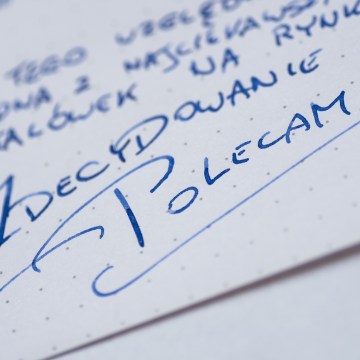 TEGO WZGLĘD
DNA Z NAJCIEKAWSZ
ALÓWEK NA RYNK
ZDECYDOWANIE
POLECAM